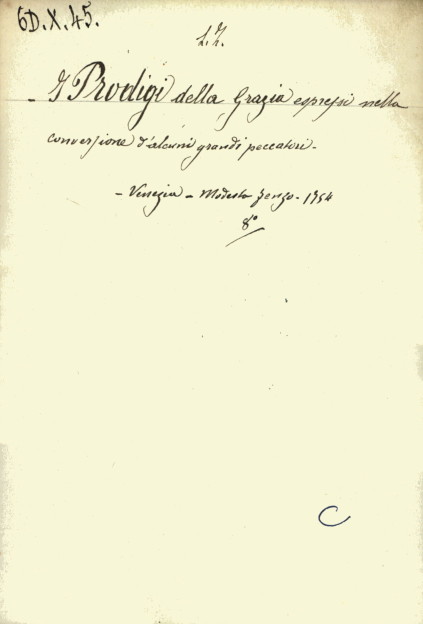 6D.X.45.
I Prodigi della Grazia espressi nella
conversione d'alcuni grandi peccatori -
- Venezia - Modesto Fenzo - 1754
8°
C